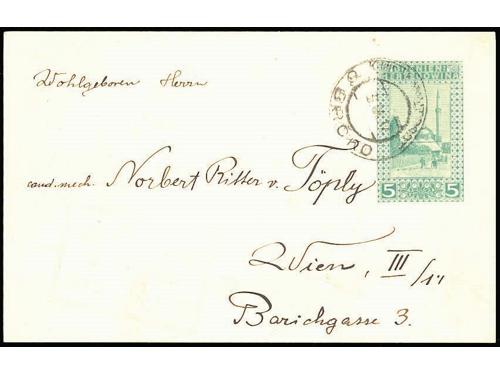 BOSNIEN-
HERZEGOWINA
Wohlgeboren Herrn
BRČKO
cand. mech. Norbert Ritter v. Töply
5 5
Wien, III/1
Barichgasse 3.